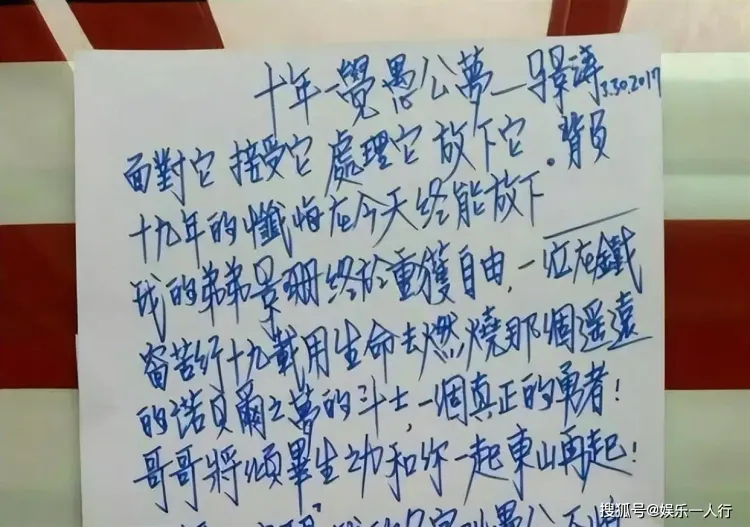 十年一覺愚公夢—景濤 3.30.2017
面對它 接受它 處理它 放下它。背負
十九年的懺悔在今天终能放下
我的弟弟景珊終於重獲自由,一位在鐵
窗苦行十九載用生命去燃燒那個遥遠
的諾貝爾之夢的斗士,一個真正的勇者!
哥哥將傾畢生之力和你一起東山再起!
搜狐号@娱乐一人行